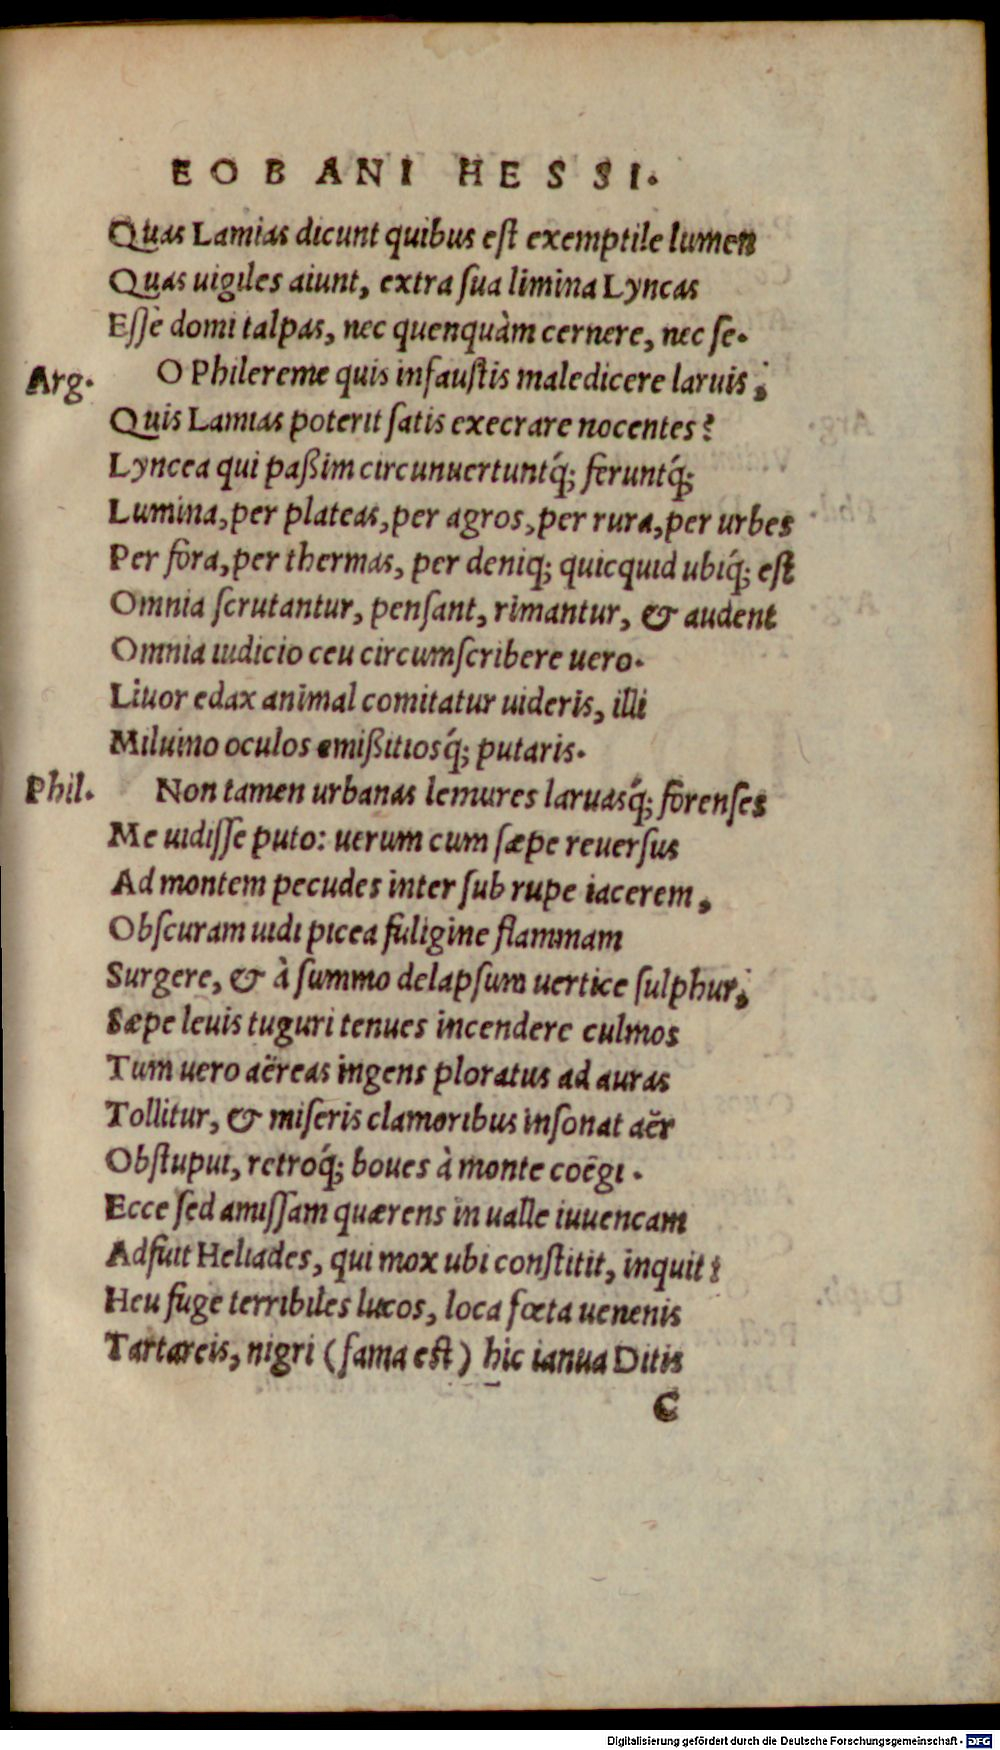 EOBANI HESSI.
Quas Lamias dicunt quibus eſt exemptile lumen
Quas uigiles aiunt, extra ſua limina Lyncas
Eſſe domi talpas, nec quenquàm cernere, nec ſe.
Arg. O Philereme quis infauſtis maledicere laruis;
Quis Lamias poterit ſatis execrare nocentes?
Lyncea qui paßim circunuertuntq́; feruntq́;
Lumina, per plateas, per agros, per rura, per urbes
Per fora, per thermas, per deniq; quicquid ubiq́; eſt
Omnia ſcrutantur, penſant, rimantur, & audent
Omnia iudicio ceu circumſcribere uero.
Liuor edax animal comitatur uideris, illi
Miluino oculos emißitiosq́; putaris.
Phil. Non tamen urbanas lemures laruasq́; forenſes
Me uidiſſe puto: uerum cum ſæpe reuerſus
Ad montem pecudes inter ſub rupe iacerem,
Obſcuram uidi picea fuligine flammam
Surgere, & à ſummo delapſum uertice ſulphur;
Sæpe leuis tuguri tenues incendere culmos
Tum uero aëreas ingens ploratus ad auras
Tollitur, & miſeris clamoribus inſonat aër
Obſtupui, retroq́; boues à monte coëgi.
Ecce ſed amiſſam quærens in ualle iuuencam
Adfuit Heliades, qui mox ubi conſtitit, inquit?
Heu fuge terribiles lucos, loca fœta uenenis
Tartareis, nigri (fama eſt) hic ianua Ditis
C
Digitalisierung gefördert durch die Deutsche Forschungsgemeinschaft - DFG